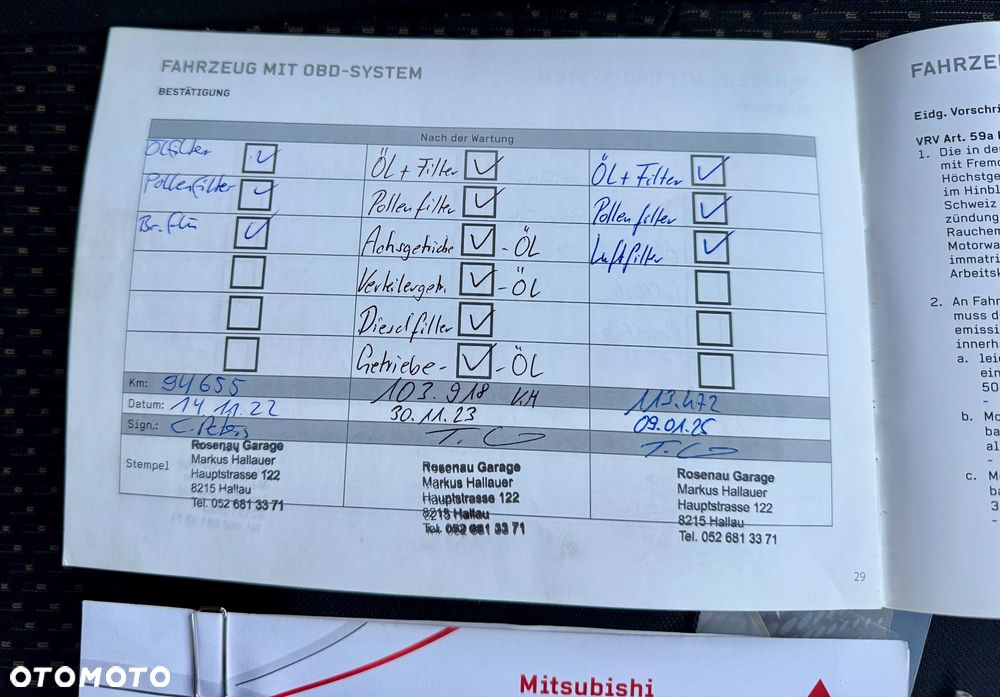 FAHRZEUG MIT OBD-SYSTEM
BESTÄTIGUNG
Nach der Wartung
Ölfilter
Pollenfilter
Öl + Filter
Pollenfilter
Achsgetriebe - ÖL
Verteilergetr. - ÖL
Dieselfilter
Getriebe - ÖL
Öl + Filter
Pollenfilter
Luftfilter
Km: 94655 103.918 KM 113.472
Datum: 14 11.22 30.11.23 09.01.25
Sign.:
Stempel
Rosenau Garage
Markus Hallauer
Hauptstrasse 122
8215 Hallau
Tel. 052 681 33 71
Rosenau Garage
Markus Hallauer
Hauptstrasse 122
8215 Hallau
Tel. 052 681 33 71
Rosenau Garage
Markus Hallauer
Hauptstrasse 122
8215 Hallau
Tel. 052 681 33 71
29
FAHRZE
Eidg. Vorschri
VRV Art. 59a
1. Die in de
mit Fremd
Höchstge
im Hinbl
Schweiz
zündung
Rauchem
Motorwa
immatri
Arbeitsk
2. An Fahr
muss d
emissi
innerha
a. lei
ein
50
-
b. Mo
ba
al
-
c. M
ba
3
-
Mitsubishi
OTOMOTO